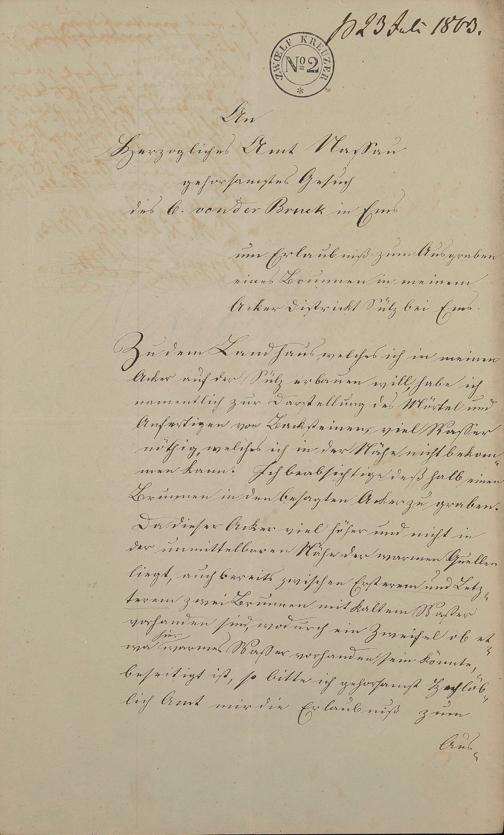 p 23 Juli 1863.
ZWOELF KREUZER
No 2
An
Herzogliches Amt Nassau
gehorsamstes Gesuch
des C. von der Bruck in Ems
um Erlaubniß zum Ausgraben
eines Brunnen in meinem
Acker District Sülz bei Ems.
Zu dem Landhaus welches ich in meinen
Acker auf der Sülz erbauen will, habe ich
namentlich zur Darstellung des Mörtel und
Anfertigen von Backsteinen, viel Wasser
nöthig, welches ich in der Nähe nicht bekom-
men kann. Ich beabsichtige deßhalb einen
Brunnen in den besagten Acker zu graben.
Da dieser Acker viel höher und nicht in
der unmittelbaren Nähe der warmen Quellen
liegt, auch bereits zwischen Ersterem und Letz-
terem zwei Brunnen mit kaltem Wasser
vorhanden sind, wodurch ein Zweifel ob et-
wa hier warmes Wasser vorhanden sein könnte,
beseitigt ist, so bitte ich gehorsamst Hochlöb-
lich Amt mir die Erlaubniß zum
Aus-